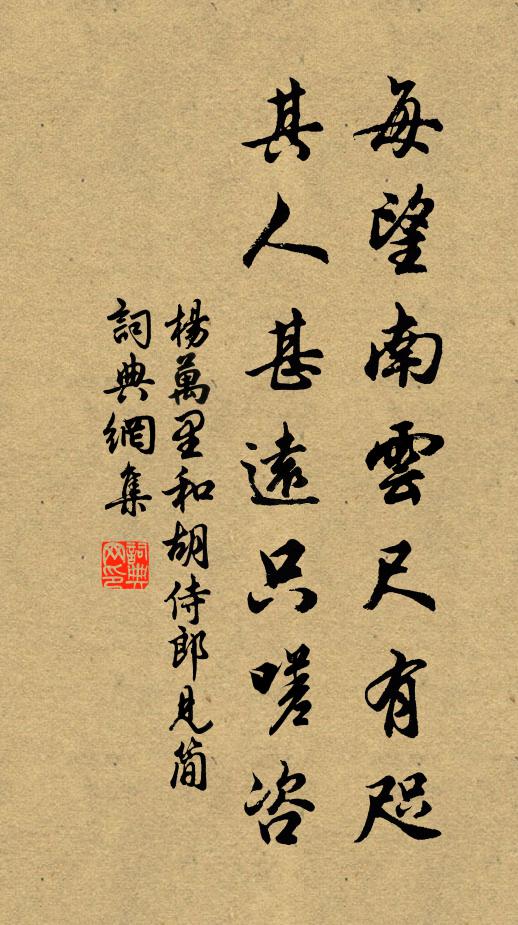 每望南雲尺有咫
其人甚遠只嗟咨
楊萬里和胡侍郎見簡
詞典網集
詞典網印